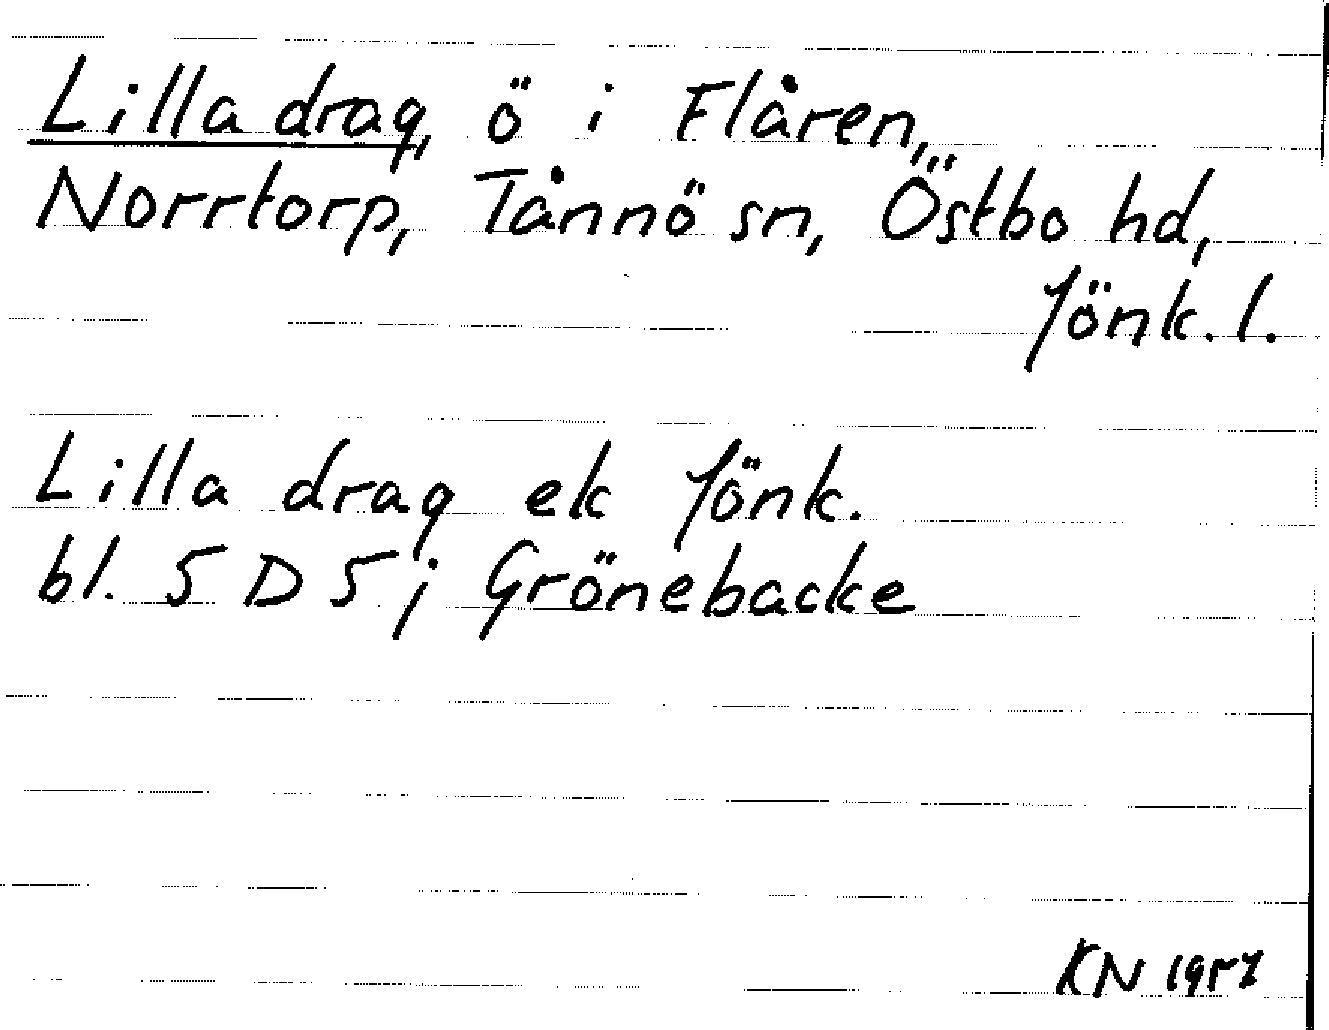 Lilla drag, ö i Flåren,
Norrtorp, Tånnö sn, Östbo hd,
Jönk. l.
Lilla drag ek Jönk.
bl. 5 D 5 j Grönebacke
KN 1957